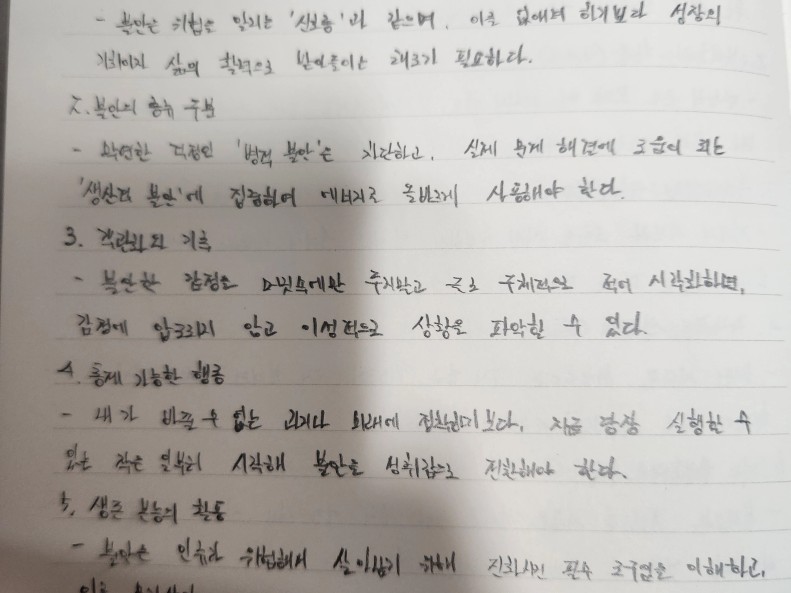 - 불안은 위험을 알리는 '신호등'과 같으며, 이를 없애려 하기보다 성장의
기회이자 삶의 활력으로 받아들이는 태도가 필요하다.
2. 불안의 종류 구분
- 막연한 걱정인 '병적 불안'은 차단하고, 실제 문제 해결에 도움이 되는
'생산적 불안'에 집중하여 에너지로 올바르게 사용해야 한다.
3. 객관화와 기록
- 불안한 감정을 머릿속에만 두지말고 글로 구체적으로 적어 시각화하면,
감정에 압도되지 않고 이성적으로 상황을 파악할 수 있다.
4. 통제 가능한 행동
- 내가 바꿀 수 없는 과거나 미래에 집착하기보다, 지금 당장 실행할 수
있는 작은 일부터 시작해 불안을 성취감으로 전환해야 한다.
5. 생존 본능의 활용
- 불안은 인류가 위험해서 살아남기 위해 진화시킨 필수 도구임을 이해하고,